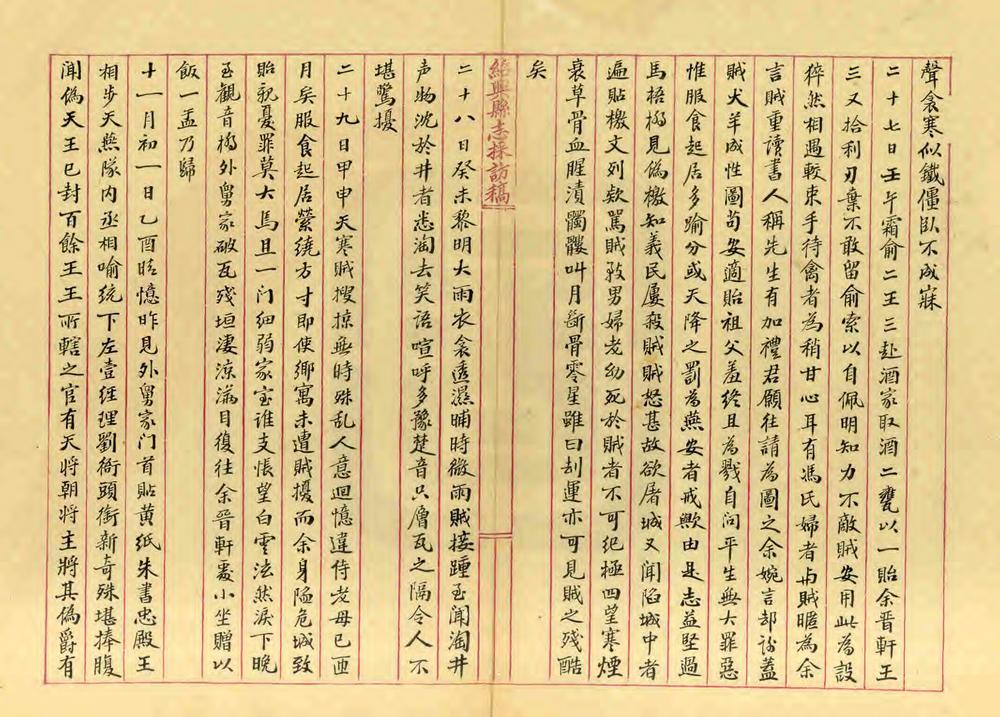 聲衾寒似鐵僵臥不成寐
二十七日壬午霜俞二王三赴酒家取酒二甕以一貽余晉軒王
三又拾利刃棄不敢留俞索以自佩明知力不敵賊安用此為設
猝然相遇較束手待禽者為稍甘心耳有馮氏婦者與賊暱為余
言賊重讀書人稱先生有加禮君願往請為圖之余婉言却謝蓋
賊犬羊成性圖苟安適貽祖父羞終且為戮自问平生無大罪惡
惟服食起居多踰分或天降之罰為燕安者戒歟由是志益堅過
馬梧橋見偽檄知義民屢殺賊賊怒甚故欲屠城又聞陷城中者
遍貼檄文列欵罵賊致男婦老幼死於賊者不可紀極四望寒煙
衰草骨血腥漬髑髏叫月斷骨零星雖曰刦運亦可見賊之殘酷
矣
紹興縣志採訪稿
二十八日癸未黎明大雨衣衾透濕晡時微雨賊接踵至聞淘井
声物沈於井者悉淘去笑語喧呼多豫楚音只層瓦之隔令人不
堪驚擾
二十九日甲申天寒賊搜掠無時殊乱人意迴憶違侍老母已匝
月矣服食起居縈繞方寸即使鄉寓未遭賊擾而余身陷危城致
貽親憂罪莫大焉且一门細弱家室谁支悵望白雲泫然淚下晚
至觀音橋外舅家破瓦殘垣淒涼滿目復往余晉軒處小坐贈以
飯一盂乃歸
十一月初一日乙酉晴憶昨見外舅家门首貼黄紙朱書忠殿王
相步天燕隊內丞相喻統下左壹經理劉銜頭銜新奇殊堪捧腹
聞偽天王已封百餘王王所轄之官有天將朝將主將其偽爵有